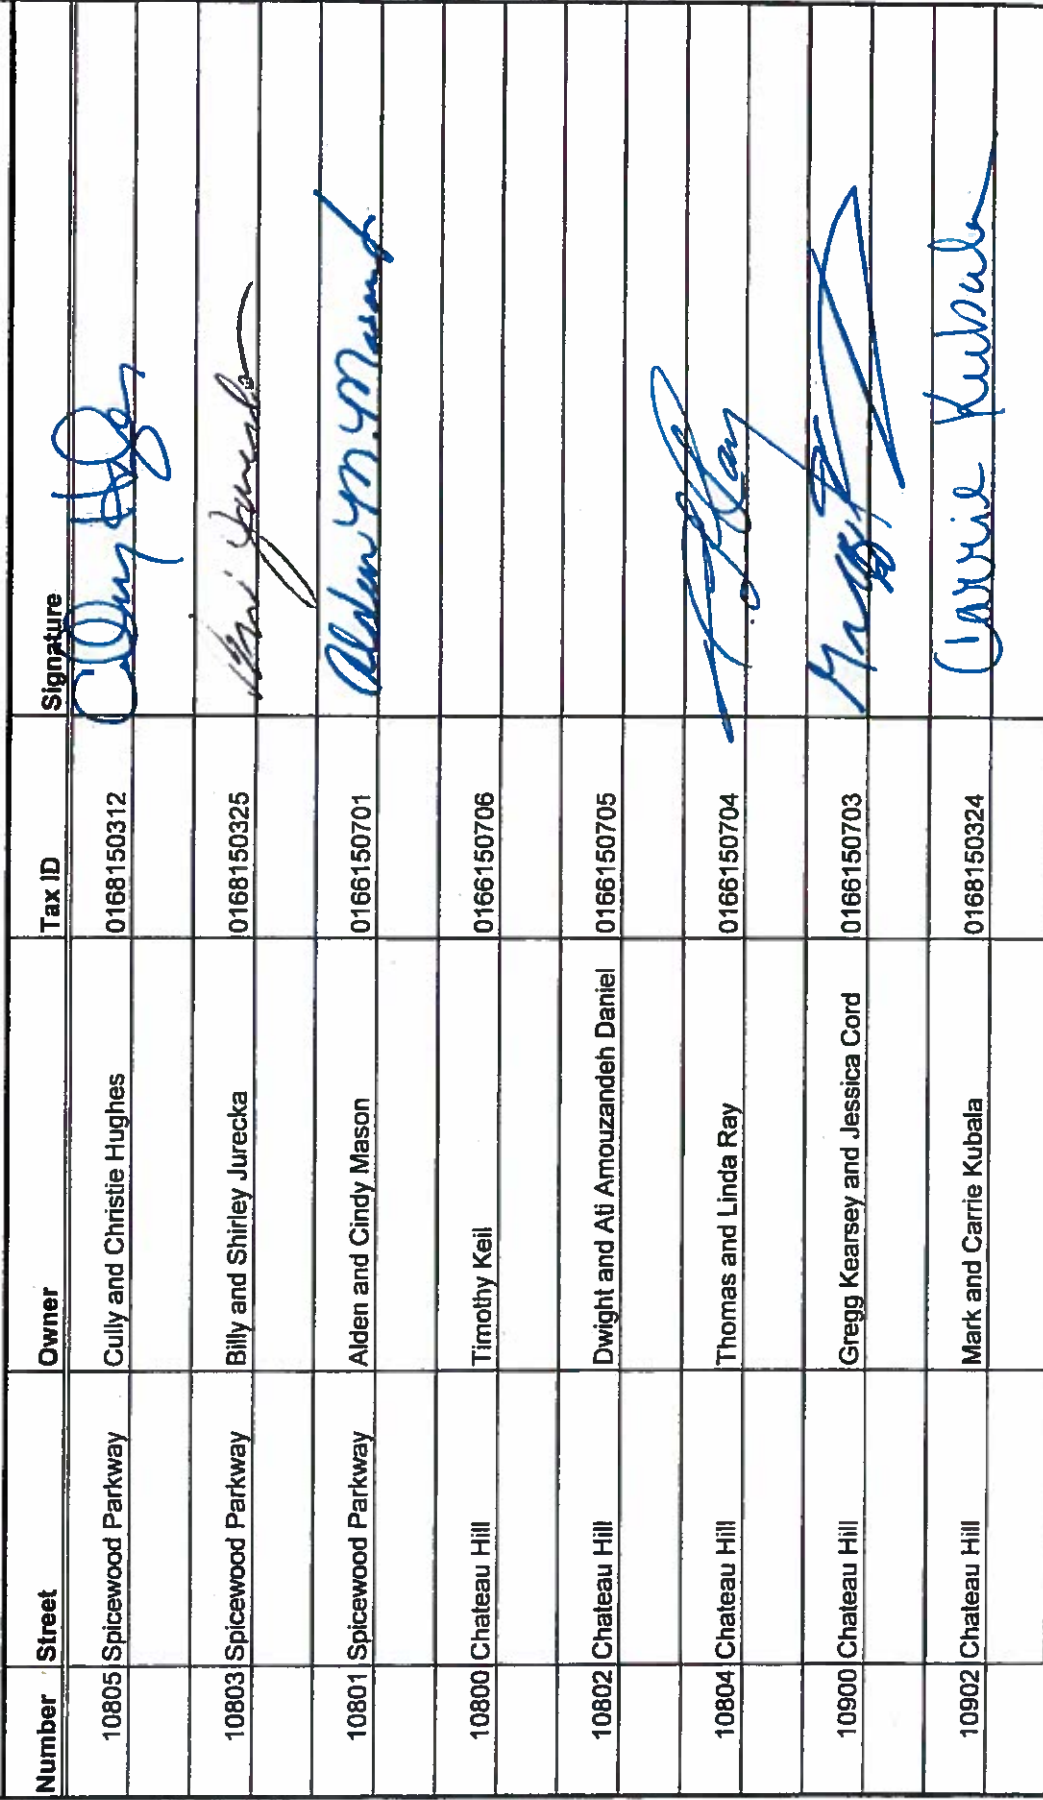 Number Street Owner Tax ID Signature
10805 Spicewood Parkway Cully and Christie Hughes 0168150312
10803 Spicewood Parkway Billy and Shirley Jurecka 0168150325
10801 Spicewood Parkway Alden and Cindy Mason 0166150701 Alden M. Mason
10800 Chateau Hill Timothy Keil 0166150706
10802 Chateau Hill Dwight and Ati Amouzandeh Daniel 0166150705
10804 Chateau Hill Thomas and Linda Ray 0166150704
10900 Chateau Hill Gregg Kearsey and Jessica Cord 0166150703
10902 Chateau Hill Mark and Carrie Kubala 0168150324 Carrie Kubala